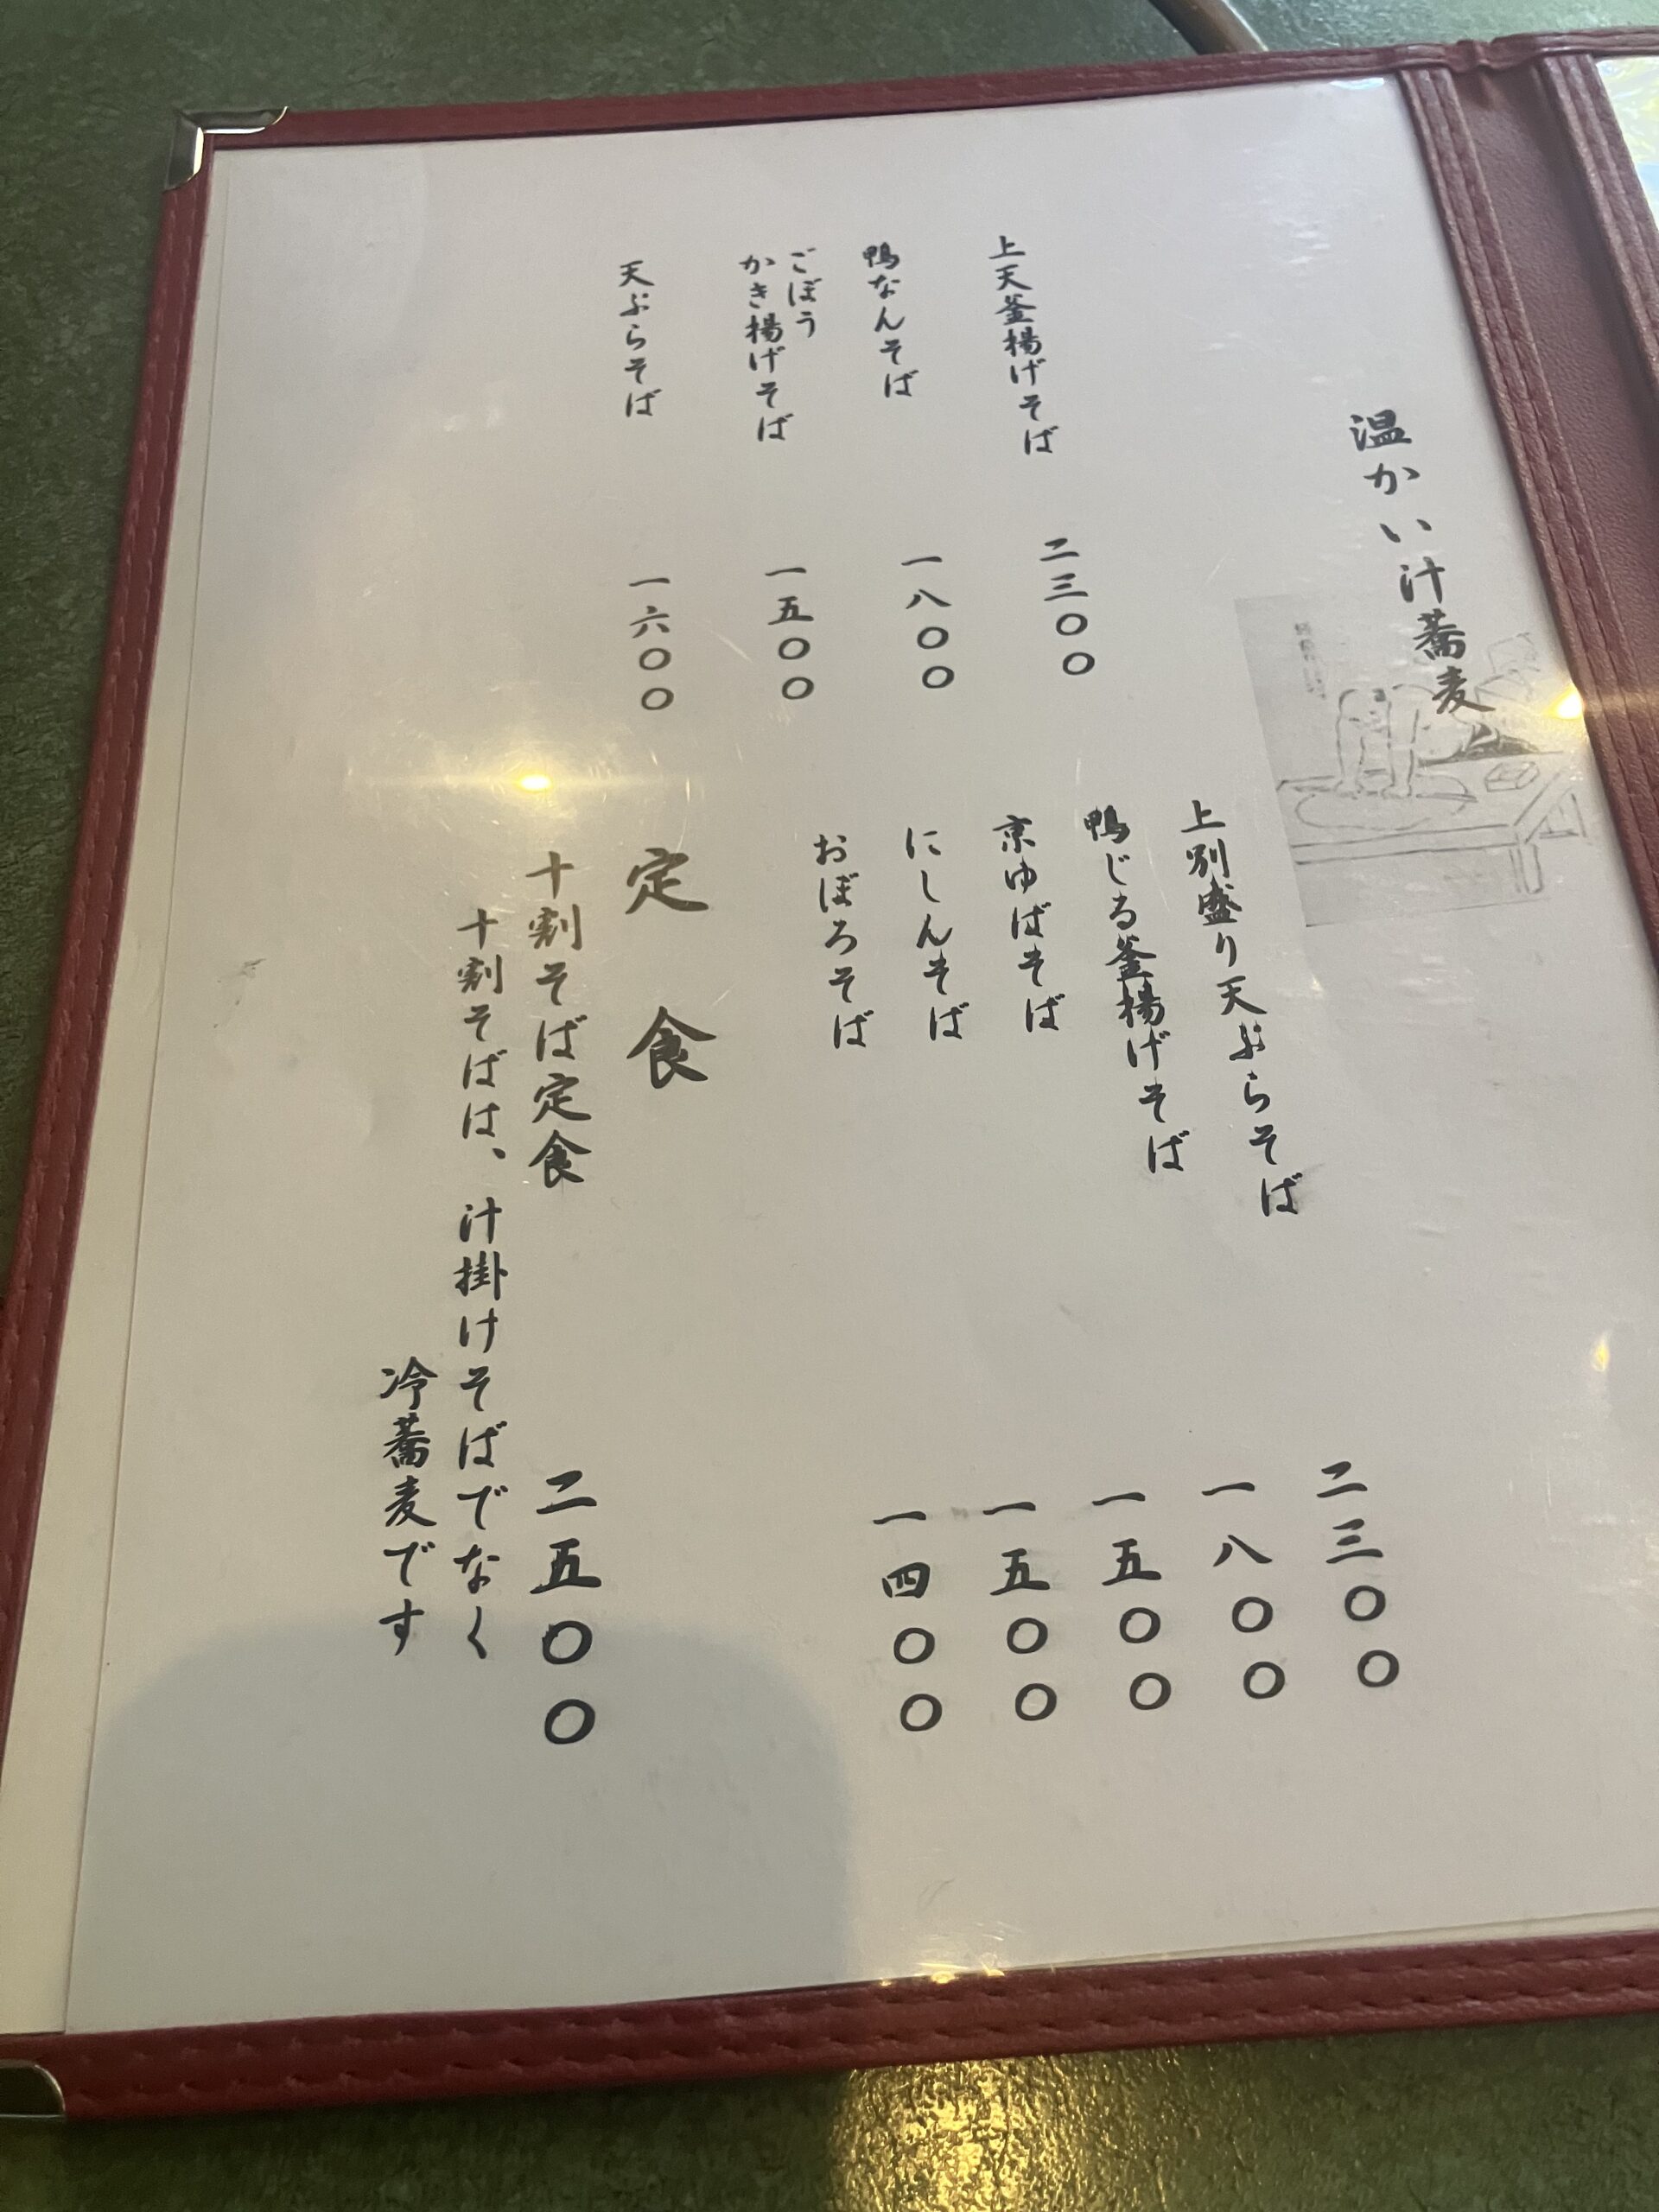 温かい汁蕎麦
上天釜揚げそば 二三〇〇
鴨なんそば 一八〇〇
ごぼう
かき揚げそば 一五〇〇
天ぷらそば 一六〇〇
上別盛り天ぷらそば 二三〇〇
鴨じる釜揚げそば 一八〇〇
京ゆばそば 一五〇〇
にしんそば 一五〇〇
おぼろそば 一四〇〇
定食
十割そば定食 二五〇〇
十割そばは、汁掛けそばでなく
冷蕎麦です